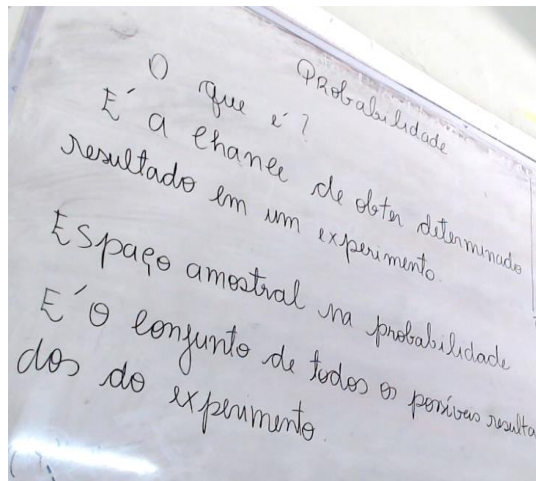 Probabilidade
O que é?
É a chance de obter determinado
resultado em um experimento.
Espaço amostral na probabilidade
É o conjunto de todos os possíveis resulta
dos do experimento.